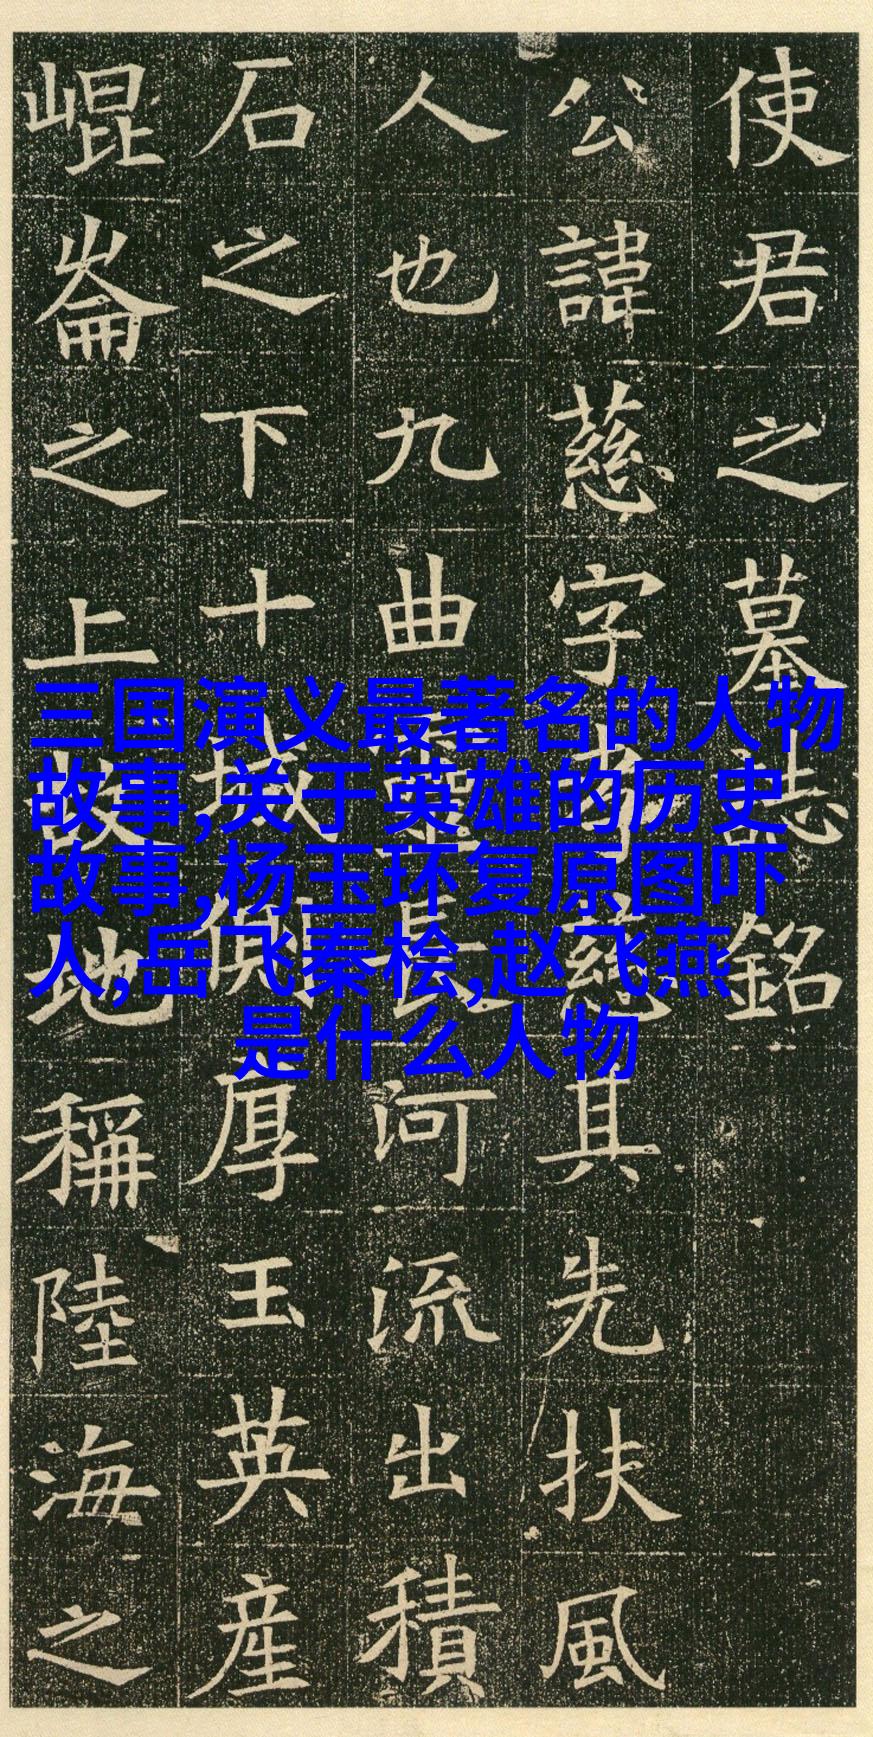 使君之墓誌銘
公諱慈字孝慈其先扶風
人也九曲靈長河流出積
石之下十城側厚玉英産
崐崘之上故地稱陸海之
三国演义最著名的人物
故事,关于英雄的历史
故事,杨玉环复原图吓
人,岳飞秦桧,赵飞燕
是什么人物